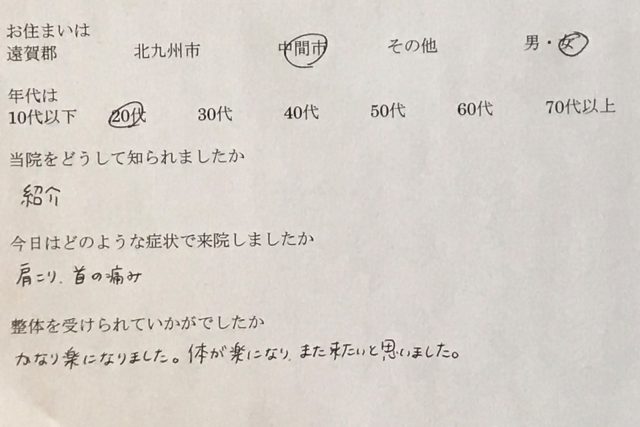 お住まいは
遠賀郡 北九州市 中間市 その他 男・女
年代は
10代以下 20代 30代 40代 50代 60代 70代以上
当院をどうして知られましたか
紹介
今日はどのような症状で来院しましたか
肩こり、首の痛み
整体を受けられていかがでしたか
かなり楽になりました。体が楽になり、また来たいと思いました。